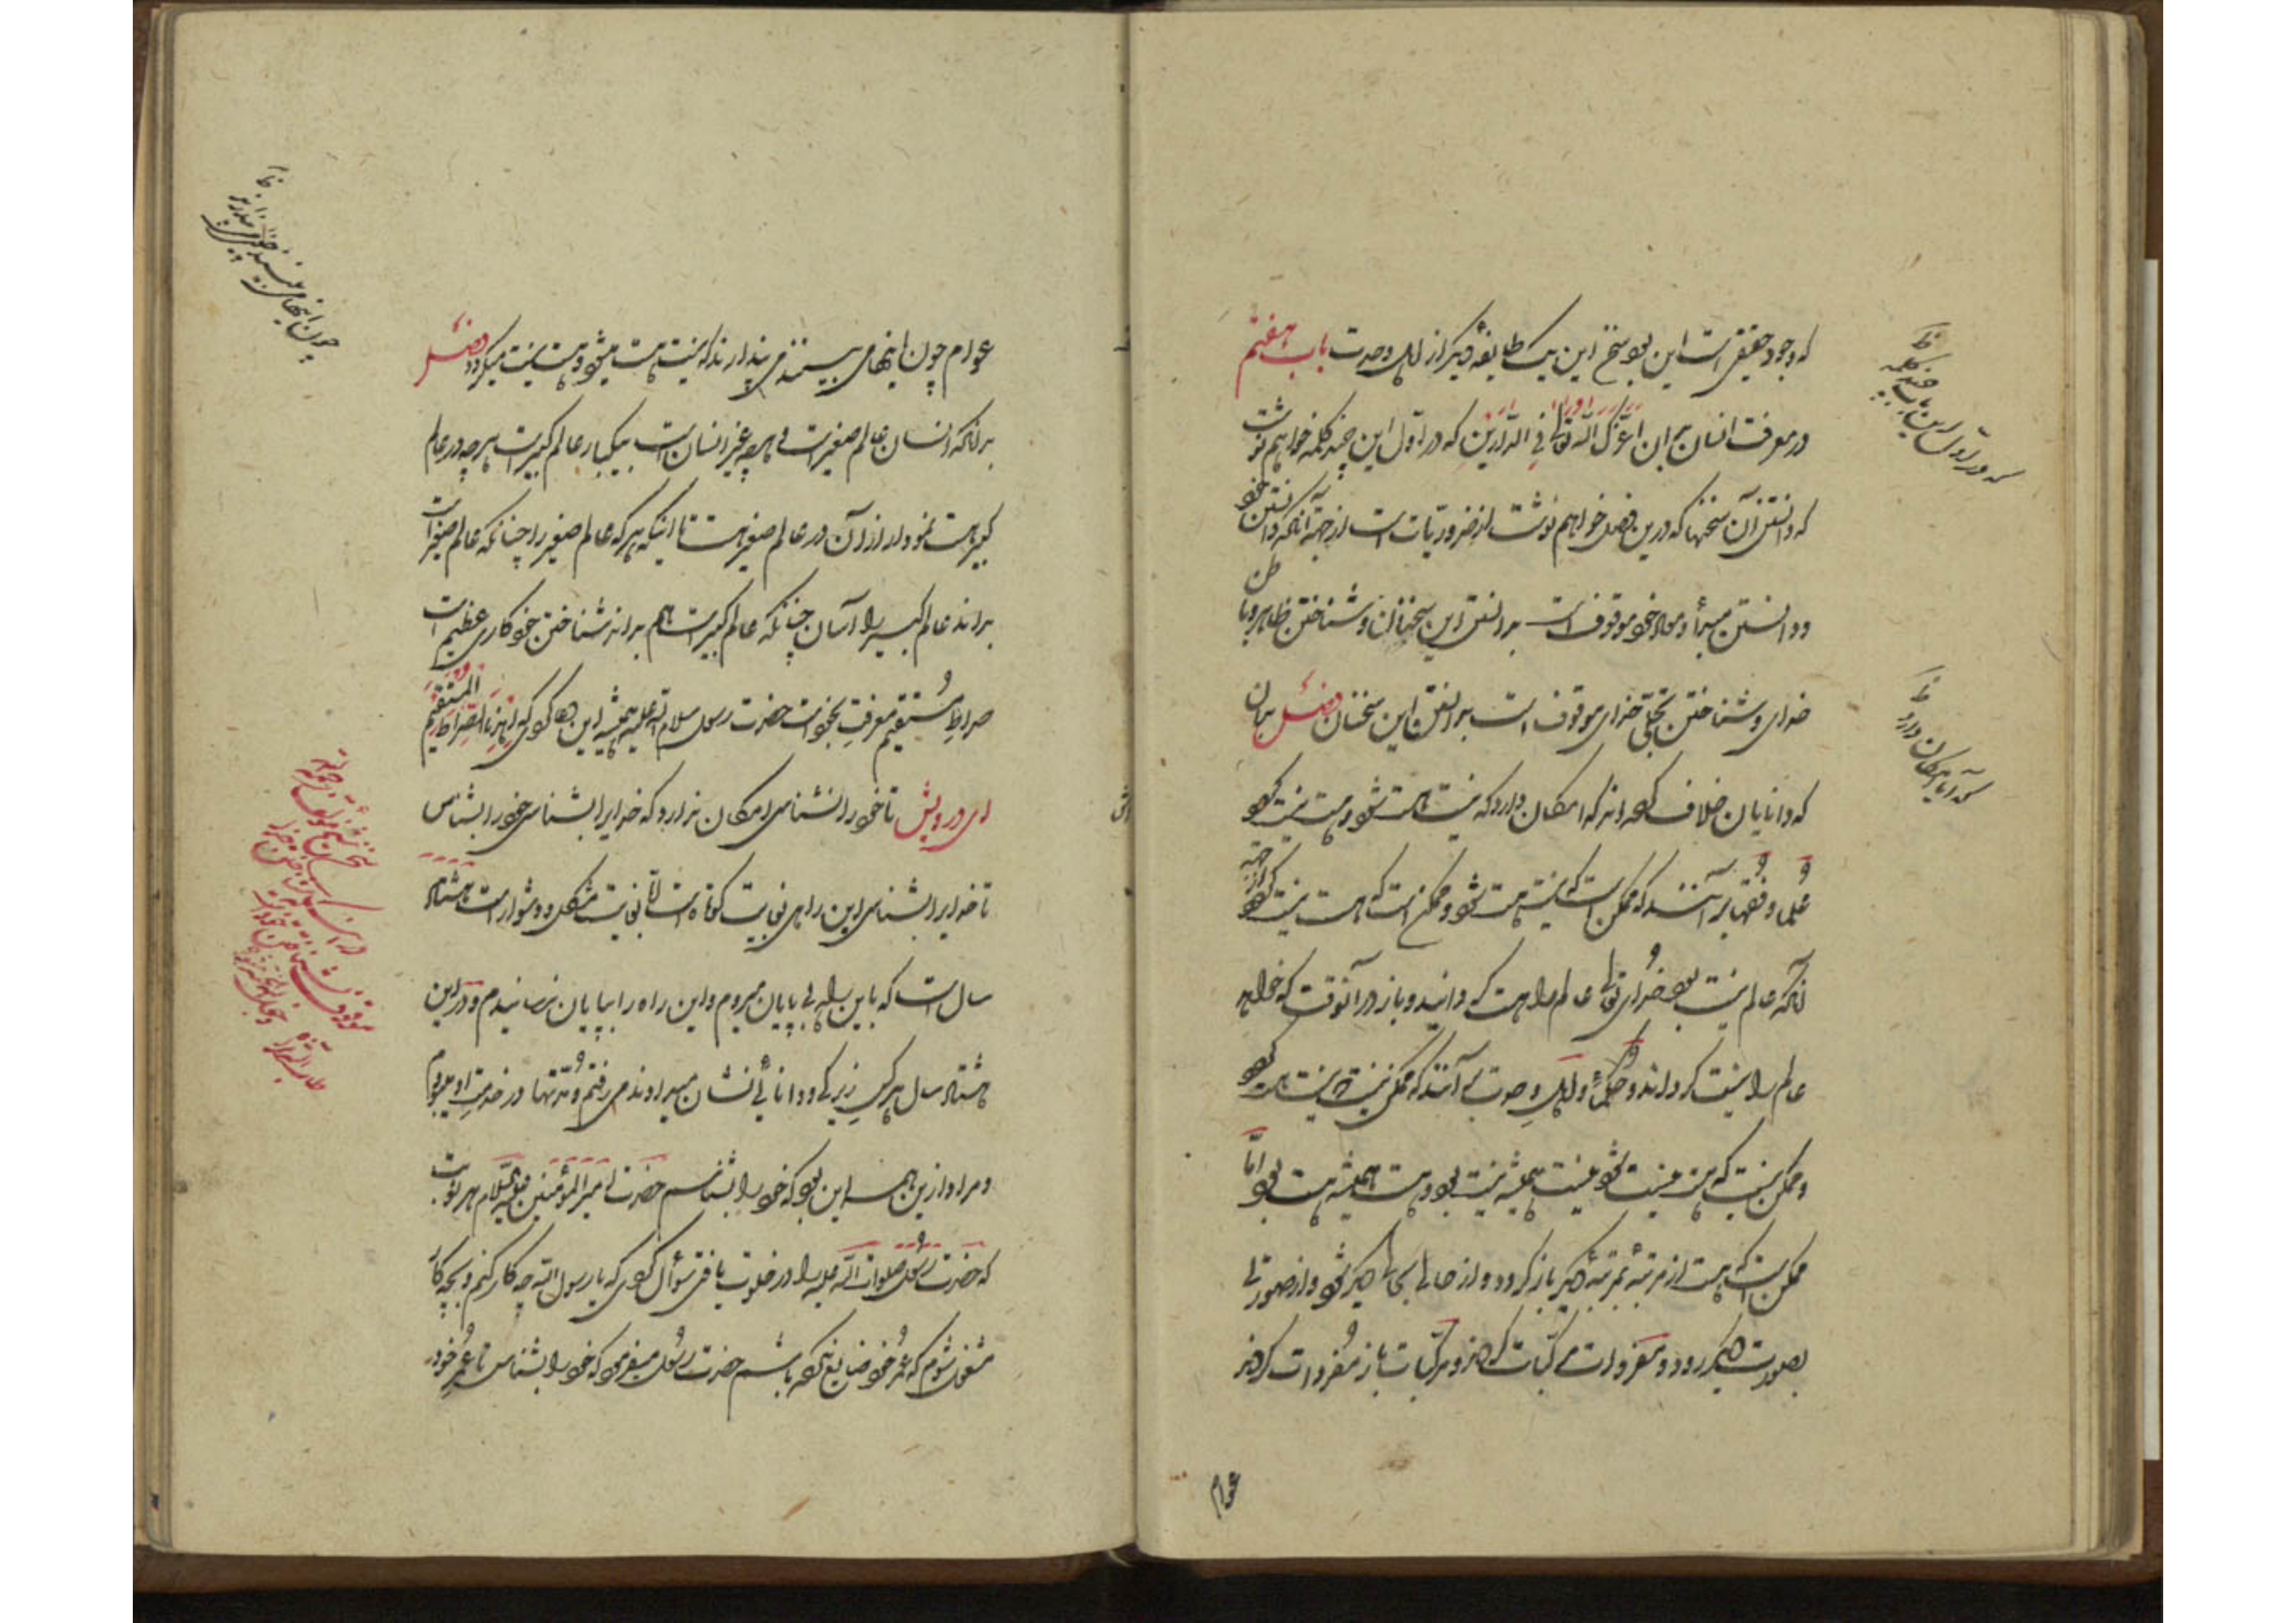 که وجود حقیقی است این بود سخن این یک طایفه دیگر از اهل وحدت باب هفتم
در معرفت انسان بدان اعزک الله تعالی فی الدارین که در اول این چند کلمه خواهم نوشت
که دانستن آن سخنها که درین فصل خواهم نوشت از ضروریات است از جهة آنکه دانستن خود
و دانستن مبدأ و معاد خود موقوف است بدانستن این سخنان و شناختن ظاهر و باطن
خدای و شناختن تجلی خدای موقوف است بدانستن این سخنان فصل بدان
که دانایان خلاف کرده‌اند که امکان دارد که نیست هست شود و هست نیست گردد
علما و فقها بر آنند که ممکن است که نیست هست شود و ممکن است که هست نیست گردد از جهة
آنکه عالم نیست بود خدای تعالی عالم را هست گردانید و باز در آنوقت که خواهد
عالم را نیست گرداند و حکماء و اهل وحدت بر آنند که ممکن نیست که نیست هست گردد
و ممکن نیست که هست نیست شود نیست همیشه نیست بود و هست همیشه هست بود اما
ممکن است که هست از مرتبه بمرتبه دیگر باز گردد و از حالی بحالی دیگر شود و از صورتی
بصورت دیگر رود و مفردات مرکبات گردند و مرکبات باز مفردات گردند
عوام
که در اول این باب چند کلمه
که آیا امکان دارد
عوام چون اینها می بینند می پندارند که نیست هست میشود و هست نیست میگردد فصل
بدانکه انسان عالم صغیرست و هرچه غیر انسان است بیکبار عالم کبیرست هرچه در عالم
کبیر هست نمودار از آن در عالم صغیر هست تا اینکه هر که عالم صغیر را چنانکه عالم صغیر است
بداند عالم کبیر را آسان چنانکه عالم کبیرست هم بداند شناختن خود کاری عظیم است
صراط مستقیم معرفت بخود است حضرت رسول سلام الله علیه همیشه این دعا گوید که اهدنا الصراط المستقیم
ای درویش تا خود را نشناسی امکان ندارد که خدایرا بشناسی خود را بشناس
تا خدایرا بشناسی این راهی بغایت کوتاه است اما بغایت مشکل و دشوار است هشتاد
سال است که باین راه بی پایان میروم و این راه را بپایان نرسانیدم و در این
هشتاد سال هر کس زیرکی و دانائی نشان میدادند می رفتم و مدتها در خدمت او می‌بودم
و مراد ازین همه این بود که خود را بشناسم حضرت امیرالمؤمنین علی علیه السلام هر نوبت
که حضرت رسول صلوات الله علیه را در خلوت یافتی سؤال کردی که یا رسول الله چه کار کنم و بچه کار
مشغول شوم که عمر خود ضایع نکرده باشم حضرت رسول میفرمود که خود را بشناس تا عمر خود را
چون اینها می بینند